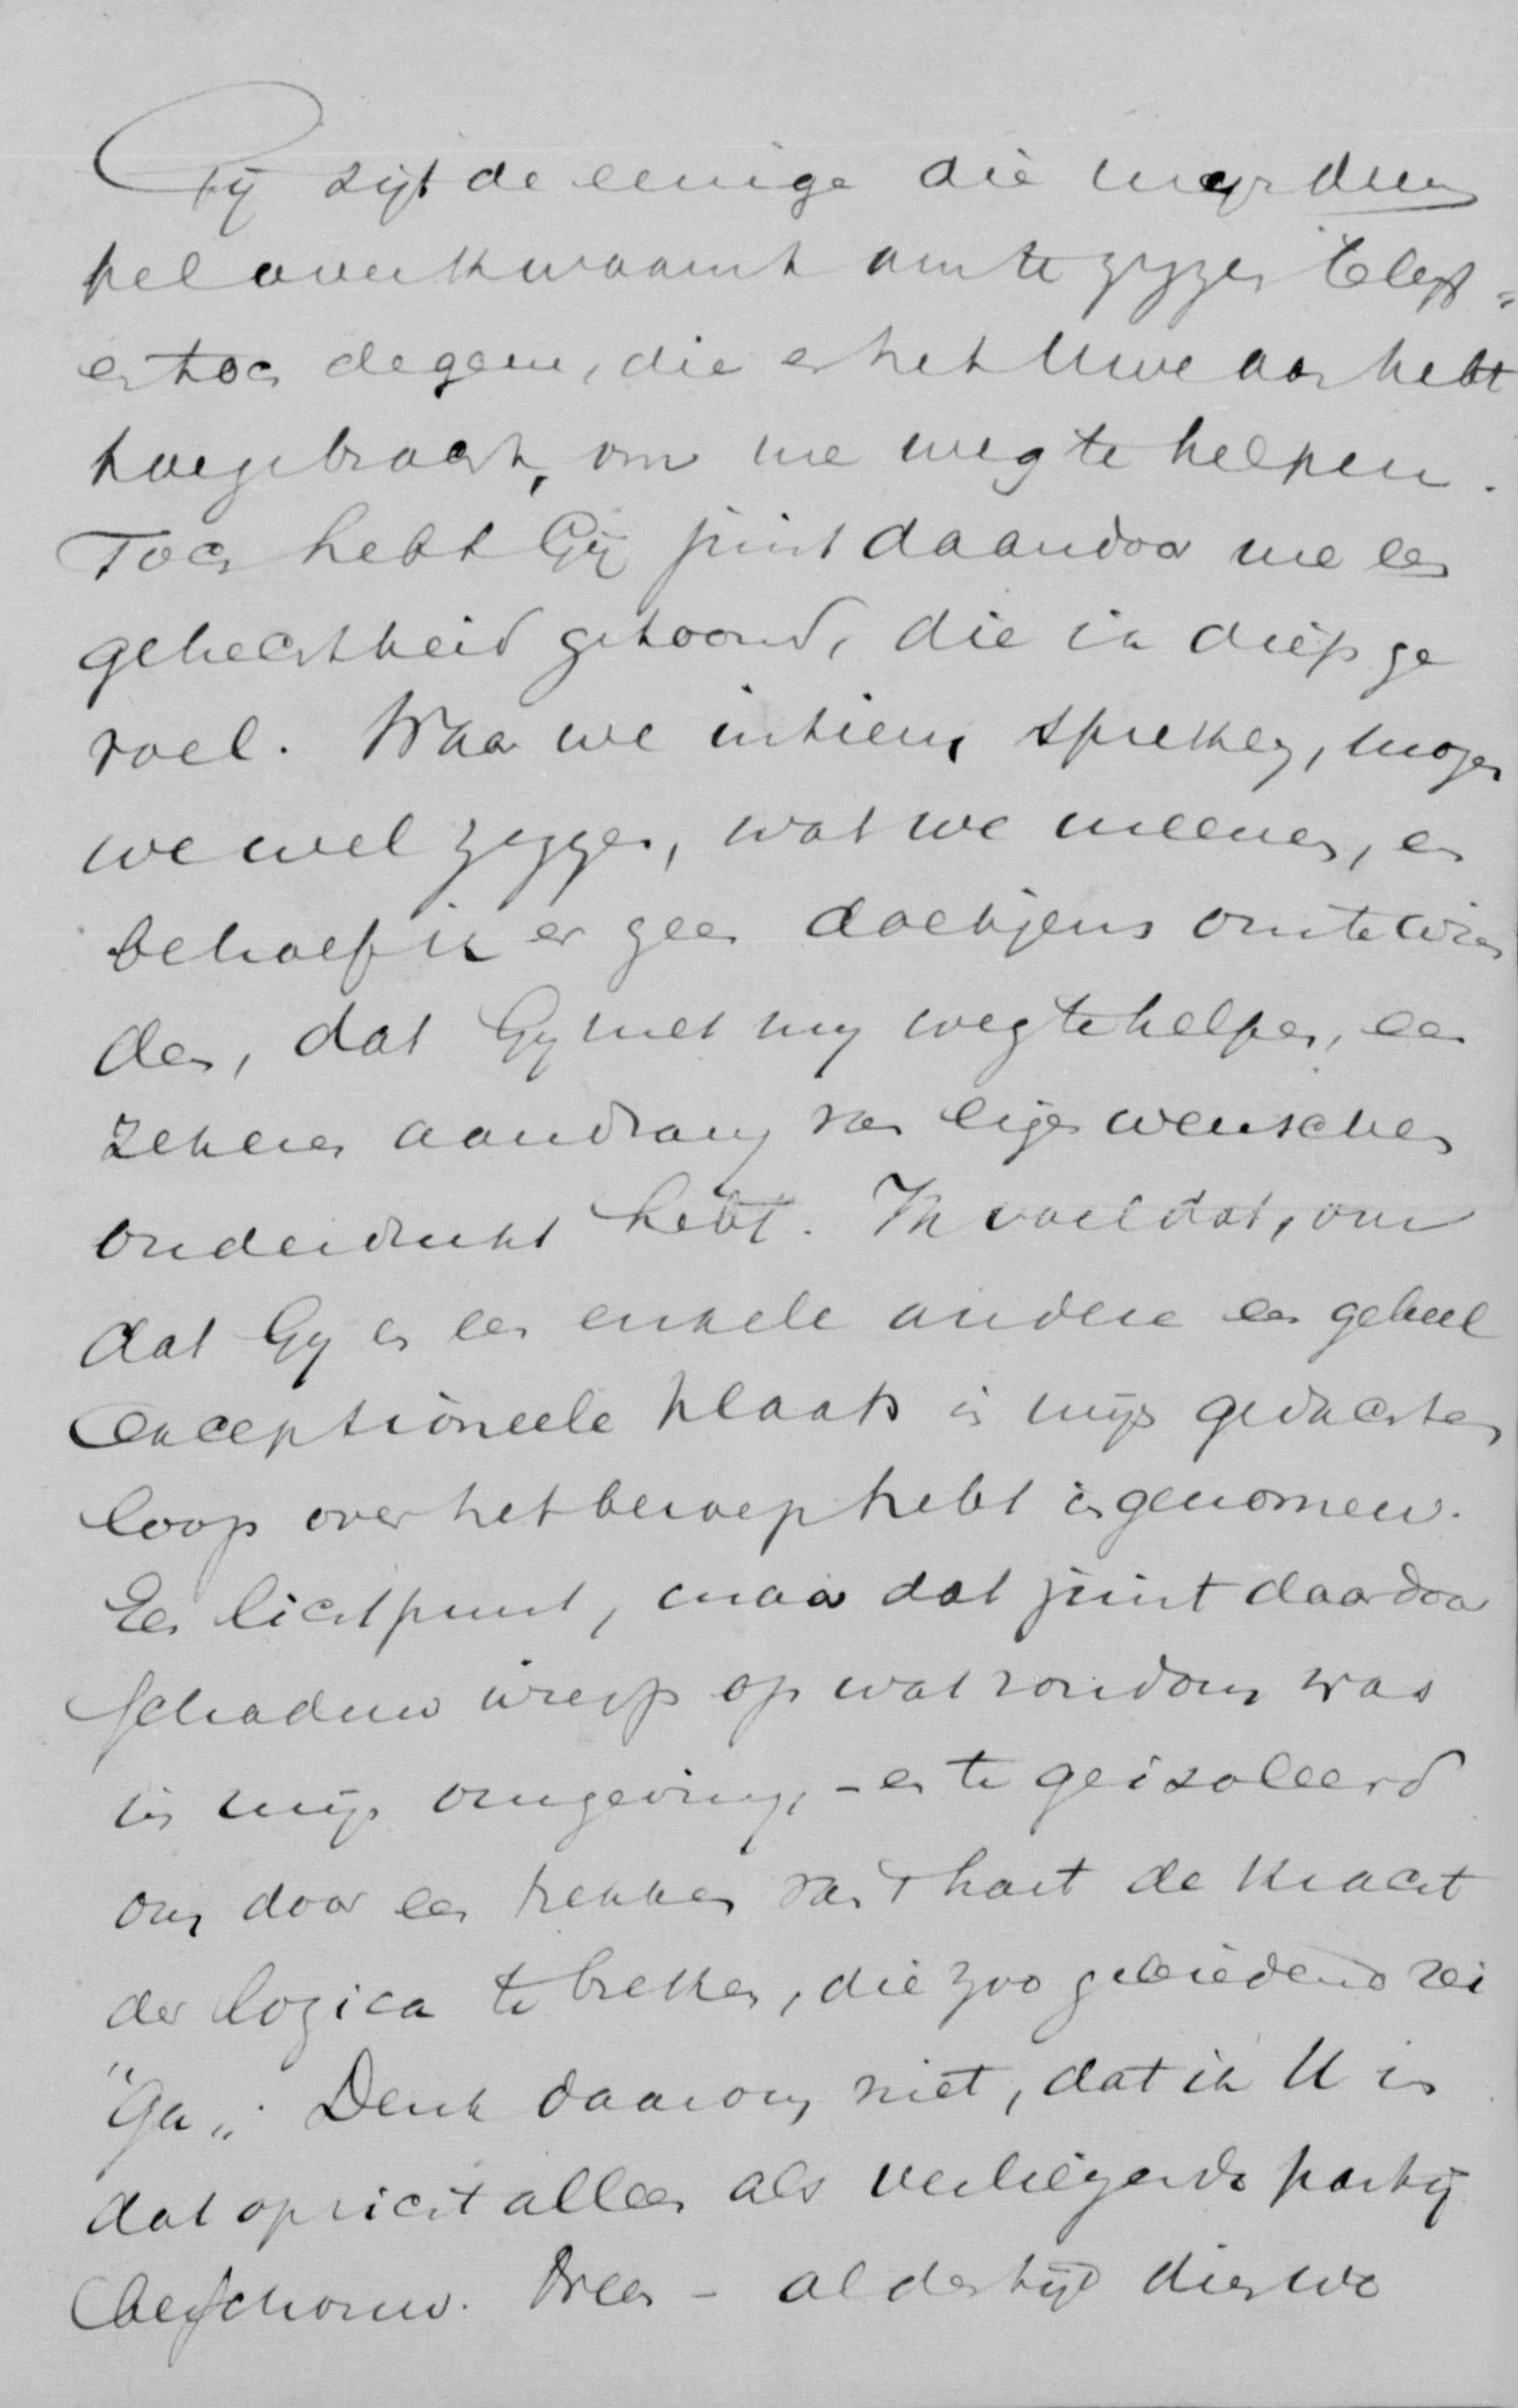 Gij zijt de eenige die naar den
pel overkwaamt om te zeggen "blijf"
en toch degene, die er het Uwe aan hebt
toegebracht, om me weg te helpen.
Toch hebt Gij juist daardoor me een
gehechtheid getoond, die ik diep ge
voel. Waar we intiem spreken, mogen
we wel zeggen, wat we meenen, en
behoef ik er geen doekjens om te win
den, dat Gij met mij weg te helpen, een
zekeren aandrang van eigen wenschen
onderdrukt hebt. Ik voel dat, om
dat Gij en een enkele andere een geheel
exceptioneele plaats in mijn gedachten
loop over het beroep hebt ingenomen.
Een lichtpunt, maar dat juist daardoor
schaduw wierp op wat rondom was
in mijn omgeving, - en te geisoleerd
om door een trekken van 't hart de kracht
der logica te breken, die zoo gebiedend zei
"Ga". Denk daarom niet, dat ik U in
dat opzicht alleen als verliezende partij
beschouw. Neen - al den tijd dien we